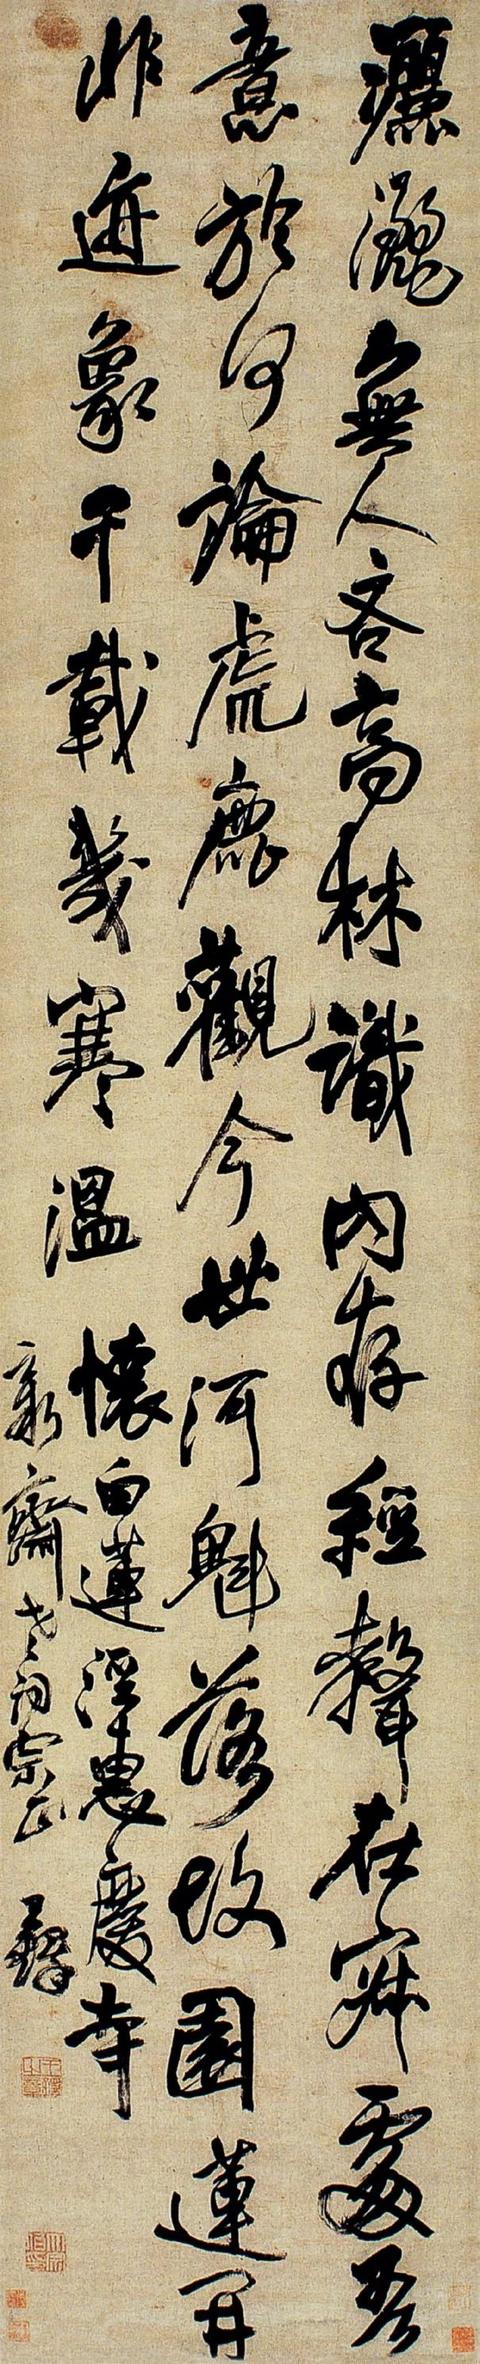 灑灑無人吝高林識內存經聲在寂處吾
意於何論虎鹿觀今世河魁落故園蓮開
非迹象千載幾寒溫 懷白蓮涇惠慶寺
齋老詞宗正 鐸